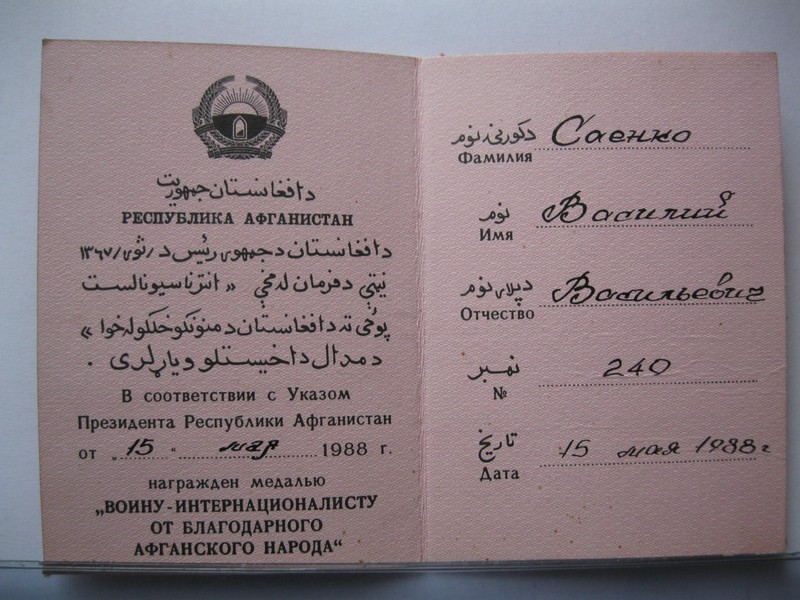 دافغانستان جمهوریت
РЕСПУБЛИКА АФГАНИСТАН
دافغانستان دجمهوری رئیس د /ثور/ ۱۳۶۷
نیټې دفرمان له مخې « انترناسیونالست
پوځي ته دافغانستان دمننوکوخلکو له خوا »
دمدال داخیستلو ویاړلری .
В соответствии с Указом
Президента Республики Афганистан
от „15“ мая 1988 г.
награжден медалью
„ВОИНУ-ИНТЕРНАЦИОНАЛИСТУ
ОТ БЛАГОДАРНОГО
АФГАНСКОГО НАРОДА“
دکورنۍ نوم Саенко
Фамилия
نوم Василий
Имя
دپلار نوم Васильевич
Отчество
نمبر 240
№
تاریخ 15 мая 1988 г
Дата